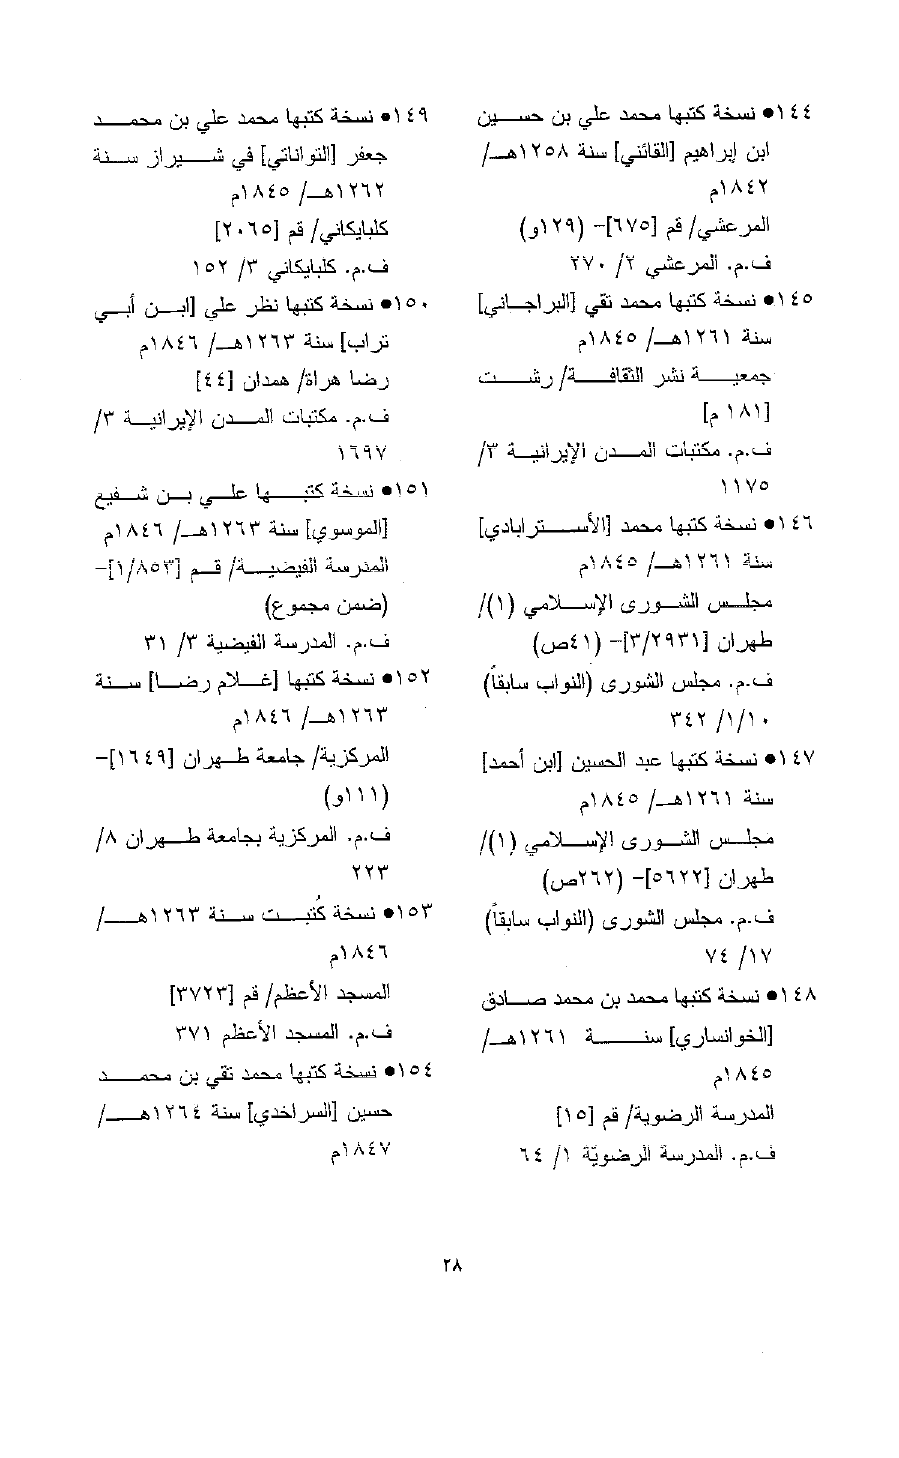 ١٤٤● نسخة كتبها محمد علي بن حسين
ابن إبراهيم [القائني] سنة ١٢٥٨هـ/
١٨٤٢م
المرعشي/ قم [٦٧٥]- (١٢٩و)
ف.م. المرعشي ٢/ ٢٧٠
١٤٥● نسخة كتبها محمد تقي [البراجاني]
سنة ١٢٦١هـ/ ١٨٤٥م
جمعية نشر الثقافة/ رشت
[١٨١ م]
ف.م. مكتبات المدن الإيرانية ٣/
١١٧٥
١٤٦● نسخة كتبها محمد [الأسترابادي]
سنة ١٢٦١هـ/ ١٨٤٥م
مجلس الشورى الإسلامي (١)/
طهران [٣/٢٩٣١]- (٤١ص)
ف.م. مجلس الشورى (النواب سابقاً)
١/١٠/ ٣٤٢
١٤٧● نسخة كتبها عبد الحسين [ابن أحمد]
سنة ١٢٦١هـ/ ١٨٤٥م
مجلس الشورى الإسلامي (١)/
طهران [٥٦٢٢]- (٢٦٢ص)
ف.م. مجلس الشورى (النواب سابقاً)
١٧/ ٧٤
١٤٨● نسخة كتبها محمد بن محمد صادق
[الخوانساري] سنة ١٢٦١هـ/
١٨٤٥م
المدرسة الرضوية/ قم [١٥]
ف.م. المدرسة الرضويّة ١/ ٦٤
١٤٩● نسخة كتبها محمد علي بن محمد
جعفر [التواناتي] في شيراز سنة
١٢٦٢هـ/ ١٨٤٥م
كلبايكاني/ قم [٢٠٦٥]
ف.م. كلبايكاني ٣/ ١٥٢
١٥٠● نسخة كتبها نظر علي [ابن أبي
تراب] سنة ١٢٦٣هـ/ ١٨٤٦م
رضا هراة/ همدان [٤٤]
ف.م. مكتبات المدن الإيرانية ٣/
١٦٩٧
١٥١● نسخة كتبها علي بن شفيع
[الموسوي] سنة ١٢٦٣هـ/ ١٨٤٦م
المدرسة الفيضية/ قم [١/٨٥٣]-
(ضمن مجموع)
ف.م. المدرسة الفيضية ٣/ ٣١
١٥٢● نسخة كتبها [غلام رضا] سنة
١٢٦٣هـ/ ١٨٤٦م
المركزية/ جامعة طهران [١٦٤٩]-
(١١١و)
ف.م. المركزية بجامعة طهران ٨/
٢٢٣
١٥٣● نسخة كُتبت سنة ١٢٦٣هـ/
١٨٤٦م
المسجد الأعظم/ قم [٣٧٢٣]
ف.م. المسجد الأعظم ٣٧١
١٥٤● نسخة كتبها محمد تقي بن محمد
حسين [السراخدي] سنة ١٢٦٤هـ/
١٨٤٧م
٢٨